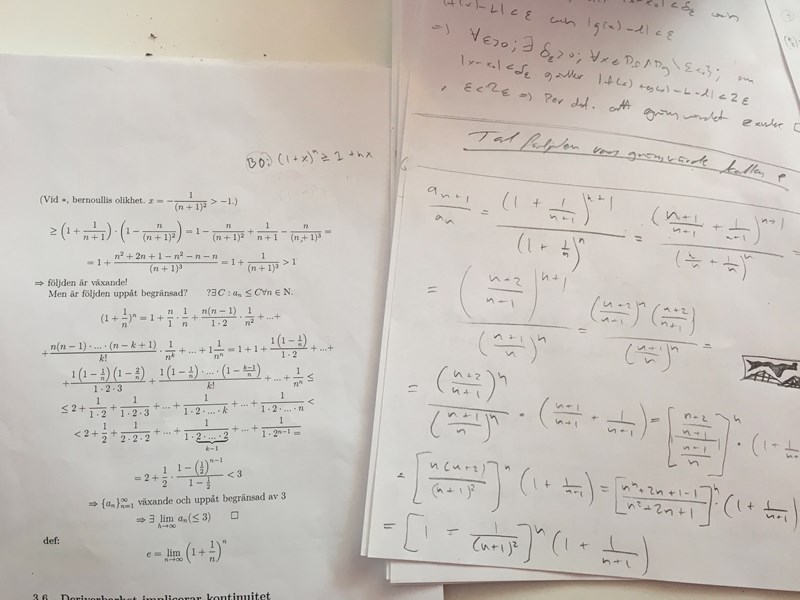 BO: (1+x)^n ≥ 1+nx
(Vid *, bernoullis olikhet. x = -1/(n+1)^2 > -1.)
≥ (1 + 1/(n+1)) · (1 - n/(n+1)^2) = 1 - n/(n+1)^2 + 1/(n+1) - n/(n+1)^3 =
= 1 + (n^2+2n+1-n^2-n-n)/(n+1)^3 = 1 + 1/(n+1)^3 > 1
⇒ följden är växande!
Men är följden uppåt begränsad? ?∃C : a_n ≤ C∀n ∈ N.
(1 + 1/n)^n = 1 + n/1 · 1/n + n(n-1)/(1·2) · 1/n^2 + ...+
+ n(n-1)·...·(n-k+1)/k! · 1/n^k + ... + 1 1/n^n = 1 + 1 + 1(1-1/n)/(1·2) + ...+
+ 1(1-1/n)(1-2/n)/(1·2·3) + 1(1-1/n)·...·(1-(k-1)/n)/k! + ... + 1/n^n ≤
≤ 2 + 1/(1·2) + 1/(1·2·3) + ... + 1/(1·2·...·k) + ... + 1/(1·2·...·n) <
< 2 + 1/2 + 1/(2·2·2) + ... + 1/(1·2·...·2) + ... + 1/(1·2^{n-1}) =
k-1
= 2 + 1/2 · (1-(1/2)^{n-1})/(1-1/2) < 3
⇒ {a_n}_{n=1}^∞ växande och uppåt begränsad av 3
⇒ ∃ lim_{h→∞} a_n(≤ 3) □
def:
e = lim_{n→∞} (1 + 1/n)^n
3.6 Deriverbarhet implicerar kontinuitet
|g(x) - l| < ε
⇒ ∀ε>0; ∃ δ_ε>0; ∀x ∈ D_f ∩ D_g \ {x_0}; om
|x-x_0| < δ_ε gäller |f(x) + g(x) - L - l| < 2ε
, ε < 2ε ⇒ Per def. att gränsvärdet
Tal följden vars gränsvärde kallas e
a_{n+1}/a_n = (1 + 1/(n+1))^{n+1} / (1 + 1/n)^n = ((n+1)/(n+1) + 1/(n+1))^{n+1} / (n/n + 1/n)^n =
= ((n+2)/(n+1))^{n+1} / ((n+1)/n)^n = ((n+2)/(n+1))^n ((n+2)/(n+1)) / ((n+1)/n)^n =
= ((n+2)/(n+1))^n / ((n+1)/n)^n · ((n+1)/(n+1) + 1/(n+1)) = [((n+2)/(n+1)) / ((n+1)/n)]^n · (1 + 1/(n+
= [n(n+2)/(n+1)^2]^n (1 + 1/(n+1)) = [(n^2+2n+1-1)/(n^2+2n+1)]^n · (1 + 1/(n+1)
= [1 - 1/(n+1)^2]^n (1 + 1/(n+1))